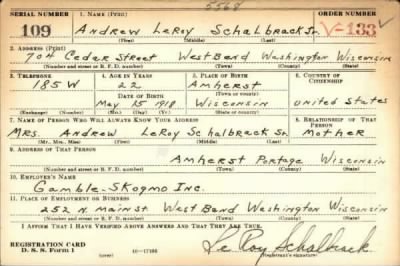 5568
SERIAL NUMBER 1. NAME (Print) ORDER NUMBER
109 Andrew LeRoy Schalbrack Jr. V-133
(First) (Middle) (Last)
2. ADDRESS (Print)
704 Cedar Street West Bend Washington Wisconsin
(Number and street or R. F. D. number) (Town) (County) (State)
3. TELEPHONE 4. AGE IN YEARS 5. PLACE OF BIRTH 6. COUNTRY OF CITIZENSHIP
185W 22 Amherst
DATE OF BIRTH (Town or county)
May 15 1918 Wisconsin United States
(Mo.) (Day) (Yr.) (State or country)
7. NAME OF PERSON WHO WILL ALWAYS KNOW YOUR ADDRESS 8. RELATIONSHIP OF THAT PERSON
Mrs. Andrew LeRoy Schalbrack Sr. Mother
(Mr., Mrs., Miss) (First) (Middle) (Last)
9. ADDRESS OF THAT PERSON
Amherst Portage Wisconsin
(Number and street or R. F. D. number) (Town) (County) (State)
10. EMPLOYER'S NAME
Gamble-Skogmo Inc.
11. PLACE OF EMPLOYMENT OR BUSINESS
252 N Main St West Bend Washington Wisconsin
(Number and street or R. F. D. number) (Town) (County) (State)
I AFFIRM THAT I HAVE VERIFIED ABOVE ANSWERS AND THAT THEY ARE TRUE.
REGISTRATION CARD
D. S. S. Form 1 (over) 16-17105
LeRoy Schalbrack
(Registrant's signature)